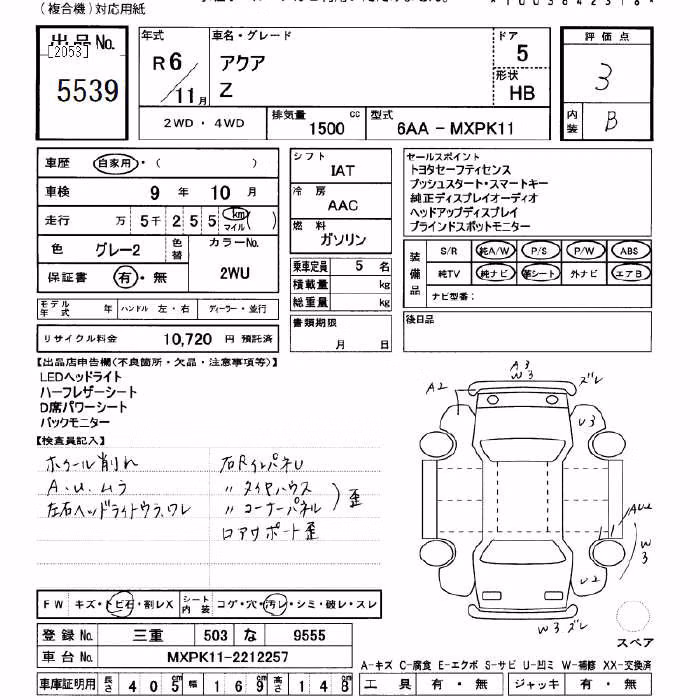 (複合機)対応用紙
出品No.
[2053]
5539
年式
R6/11月
車名・グレード
アクア
Z
ドア
5
形状
HB
評価点
3
内装
B
2WD・4WD
排気量
1500
cc
型式
6AA-MXPK11
車歴 自家用・( )
車検 9年 10月
走行 万 5千 2 5 5 km マイル ( )
色 グレー2 色替
カラーNo.
2WU
保証書 有・無
モデル年式 年 ハンドル 左・右 ディーラー・並行
リサイクル料金 10,720 円 預託済
シフト
IAT
冷房
AAC
燃料
ガソリン
乗車定員 5 名
積載量 kg
総重量 kg
書類期限
月 日
セールスポイント
トヨタセーフティセンス
プッシュスタート・スマートキー
純正ディスプレイオーディオ
ヘッドアップディスプレイ
ブラインドスポットモニター
装備品
S/R 純A/W P/S P/W ABS
純TV 純ナビ 革シート 外ナビ エアB
ナビ型番:
後日品
【出品店申告欄(不良箇所・欠品・注意事項等)】
LEDヘッドライト
ハーフレザーシート
D席パワーシート
バックモニター
【検査員記入】
ホイール削れ
A.U.ムラ
左右ヘッドライトウラ、ワレ
右RインパネU
〃 タイヤハウス
〃 コーナーパネル
)歪
ロアサポート歪
A3
W3
ズレ
A2
U3
AU2
W3
U2
W3 ズレ
スペア
FW キズ・トビ石・割レX
シート内装 コゲ・穴・汚レ・シミ・破レ・スレ
登録No. 三重 503 な 9555
車台No. MXPK11-2212257
A-キズ C-腐食 E-エクボ S-サビ U-凹ミ W-補修 XX-交換済
車庫証明用 長さ 405 幅 169 高さ 148
工具 有・無 ジャッキ 有・無